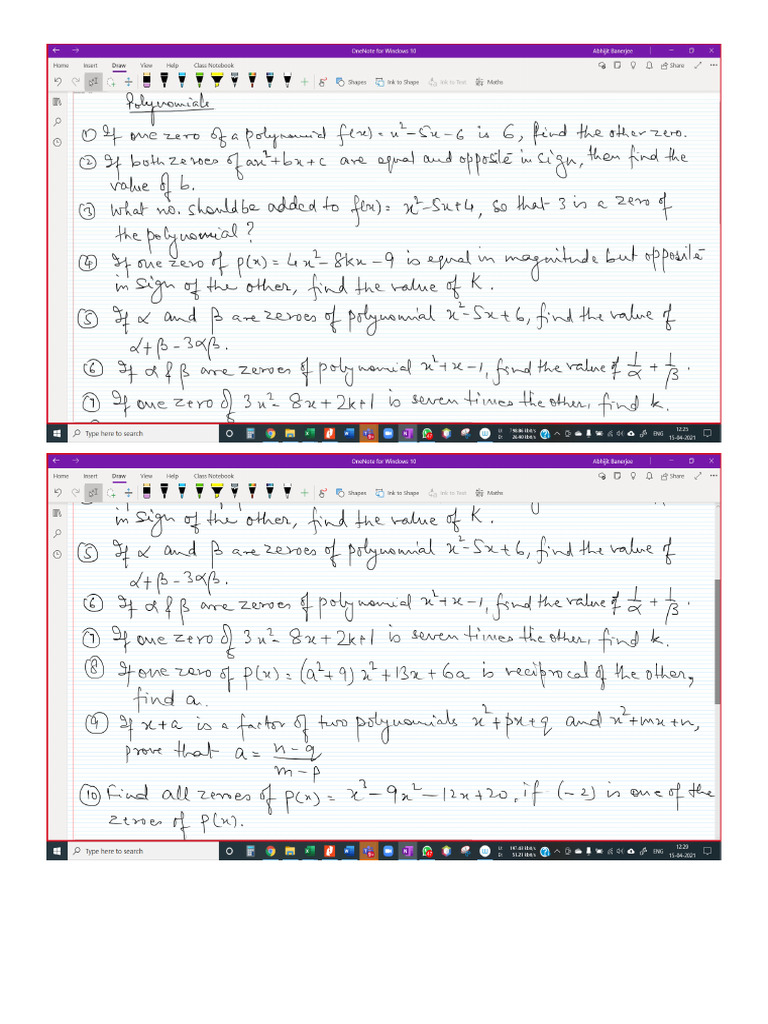 OneNote for Windows 10 Abhijit Banerjee
Home Insert Draw View Help Class Notebook Share
Shapes Ink to Shape Ink to Text Maths
Polynomials
① If one zero of a polynomial f(x) = x²-5x-6 is 6, find the other zero.
② If both zeroes of ax²+bx+c are equal and opposite in sign, then find the
value of b.
③ What no. should be added to f(x) = x²-5x+4, so that 3 is a zero of
the polynomial?
④ If one zero of p(x) = 4x²-8kx-9 is equal in magnitude but opposite
in sign of the other, find the value of K.
⑤ If α and β are zeroes of polynomial x²-5x+6, find the value of
α+β-3αβ.
⑥ If α & β are zeroes of polynomial x²+x-1, find the value of 1/α + 1/β.
⑦ If one zero of 3x²-8x+2k+1 is seven times the other, find k.
Type here to search ENG 12:25
15-04-2021
OneNote for Windows 10 Abhijit Banerjee
Home Insert Draw View Help Class Notebook Share
Shapes Ink to Shape Ink to Text Maths
in sign of the other, find the value of K.
⑤ If α and β are zeroes of polynomial x²-5x+6, find the value of
α+β-3αβ.
⑥ If α & β are zeroes of polynomial x²+x-1, find the value of 1/α + 1/β.
⑦ If one zero of 3x²-8x+2k+1 is seven times the other, find k.
⑧ If one zero of p(x) = (a²+9)x²+13x+6a is reciprocal of the other,
find a.
⑨ If x+a is a factor of two polynomials x²+px+q and x²+mx+n,
prove that a = n-q/m-p
⑩ Find all zeroes of p(x) = x³-9x²-12x+20, if (-2) is one of the
zeroes of p(x).
Type here to search ENG 12:29
15-04-2021